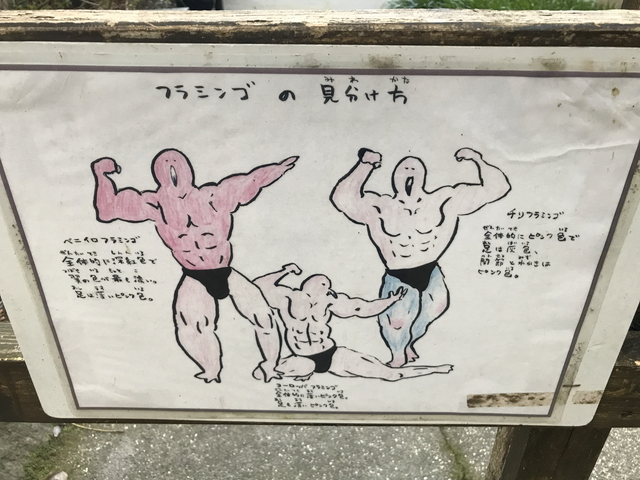 み わ かた
フラミンゴ の 見分け方
ベニイロフラミンゴ
全体的に深紅色で
翼の色が最も濃い。
足は薄いピンク色。
チリフラミンゴ
全体的にピンク色で
足は灰色、
関節と水かきは
ピンク色。
ヨーロッパフラミンゴ
全体的に薄いピンク色。
足も薄いピンク色。